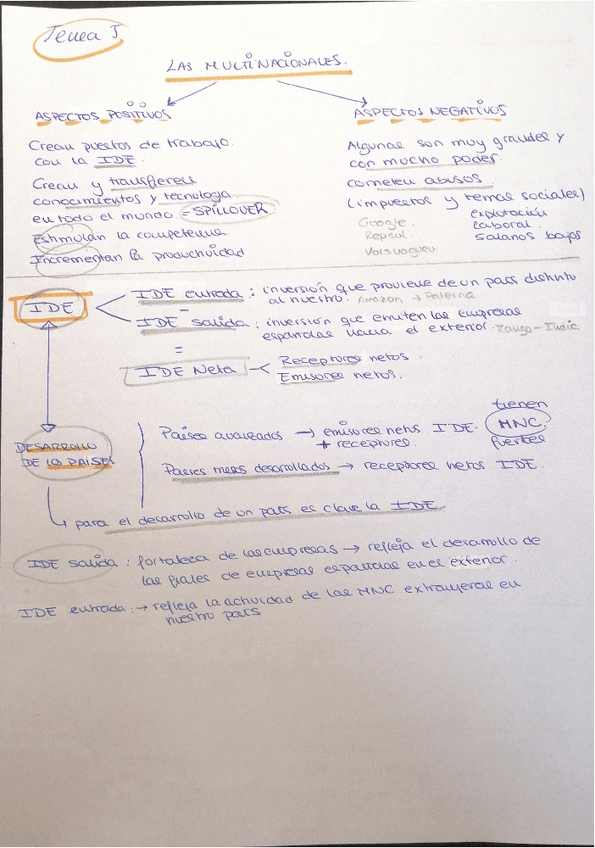 Tema 5
LAS MULTINACIONALES.
ASPECTOS POSITIVOS
Crean puestos de trabajo.
con la IDE.
Crean y transfieren
conocimientos y tecnología
en todo el mundo = SPILLOVER
Estimulan la competencia
Incrementan la productividad
ASPECTOS NEGATIVOS
Algunas son muy grandes y
con mucho poder.
cometen abusos
(impuestos y temas sociales)
Google.
Repsol.
Volswaguen
explotación
laboral.
salarios bajos
IDE
IDE entrada : inversión que proviene de un país distinto
al nuestro. Amazon → Paterna
-
IDE salida : inversión que emiten las empresas
españolas hacia el exterior.
=
IDE Neta
Receptores netos.
Emisores netos.
DESARROLLO
DE LOS PAÍSES
Países avanzados → emisores netos IDE.
+ receptores.
tienen
MNC
fuertes
Países menos desarrollados → receptores netos IDE.
para el desarrollo de un país es clave la IDE
IDE salida : fortaleza de las empresas → refleja el desarrollo de
las filiales de empresas españolas en el exterior.
IDE entrada : → refleja la actividad de las MNC extranjeras en
nuestro país